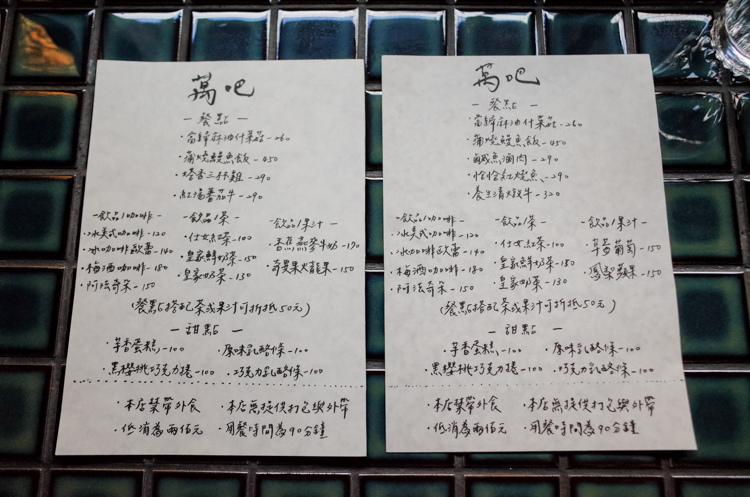 萬吧
－餐點－
·當歸麻油什菜菇－260
·蒲燒鰻魚飯－450
·塔香三杯雞－290
·紅湯蕃茄牛－290
－飲品1咖啡－
·冰美式咖啡－120
·冰咖啡歐蕾－140
·梅酒咖啡－180
·阿法奇朵－150
－飲品1茶－
·仕女紅茶－100
·皇家鮮奶茶－150
·皇家奶茶－130
－飲品1果汁－
·香蕉燕麥牛奶－190
·奇異果火龍果－150
(餐點搭配茶或果汁可折抵50元)
－甜點－
·芋香蛋糕－100 ·原味乳酪條－100
·黑櫻桃巧克力捲－100 ·巧克力乳酪條－100
·本店禁帶外食 ·本店無提供打包與外帶
·低消為兩佰元 ·用餐時間為90分鐘
萬吧
－餐點－
·當歸麻油什菜菇－260
·蒲燒鰻魚飯－450
·鹹魚滷肉－290
·恰恰紅燒魚－290
·養生清燉牛－320
－飲品1咖啡－
·冰美式咖啡－120
·冰咖啡歐蕾－140
·梅酒咖啡－180
·阿法奇朵－150
－飲品1茶－
·仕女紅茶－100
·皇家鮮奶茶－150
·皇家奶茶－130
－飲品1果汁－
·草莓葡萄－150
·鳳梨蘋果－150
(餐點搭配茶或果汁可折抵50元)
－甜點－
·芋香蛋糕－100 ·原味乳酪條－100
·黑櫻桃巧克力捲－100 ·巧克力乳酪條－100
·本店禁帶外食 ·本店無提供打包與外帶
·低消為兩佰元 ·用餐時間為90分鐘